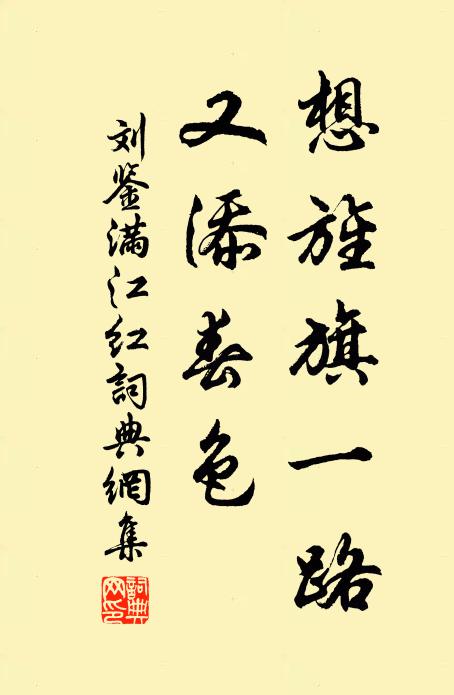 想旌旗一路
又添春色
刘鉴满江红詞典網集
詞典网印